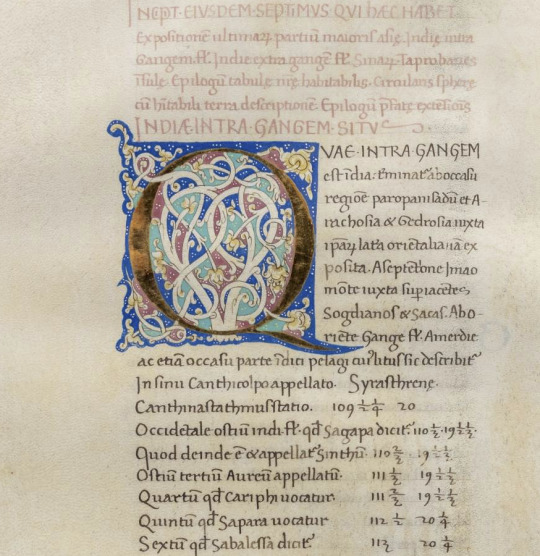 INCIPIT · EIVSDEM · SEPTIMVS · QVI HÆC HABET
Expositionē ultimarꝝ partiū maioris asię. Indię intra
Gangem fl̄. Indie extra gangē fl̄. Sinarꝝ. Taprobanes
īsulę. Epilogū tabulę nrę habitabilis. Circularis sphere
cū hītabili terra descriptionē. Epilogū
INDIÆ · INTRA · GANGEM · SITVS
QVAE · INTRA GANGEM
est īdia: terminatᷣ ab occasu
regiōe paropanisadū et A-
rachosia & Gedrosia iuxta
ipaꝝ latera oriētalia iā ex
posita. A septētōne Imao
mōte iuxta supiacētes
Sogdianos & Sacas. Ab o-
riēte Gange fl̄. A meridie
ac etiā occasu parte īdici pelagi cuiꝰ litus sic describitᷣ
In sinu Canthicolpo appellato. Syrasthrene.
Canthi nastathmus statio. 109 ½ ¼ 20
Occidētale ostiū indi fl̄. qđ Sagapa dicitᷣ. 110 ⅓ · 19 ½ ⅓ ·
Quod deinde ē & appellatᷣ Sinthū · 110 ⅔ 19 ½ ⅓
Ostiū tertiū Aureū appellatū · 111 ⅓ 19 ½ ⅓
Quartū qđ Cariphi uocatur · 111 ⅔ 19 ½ ⅓
Quintū qđ Sapara uocatur 112 ½ 20 ¼
Sextū qđ Sabalessa dicitᷣ 113 20 ¼